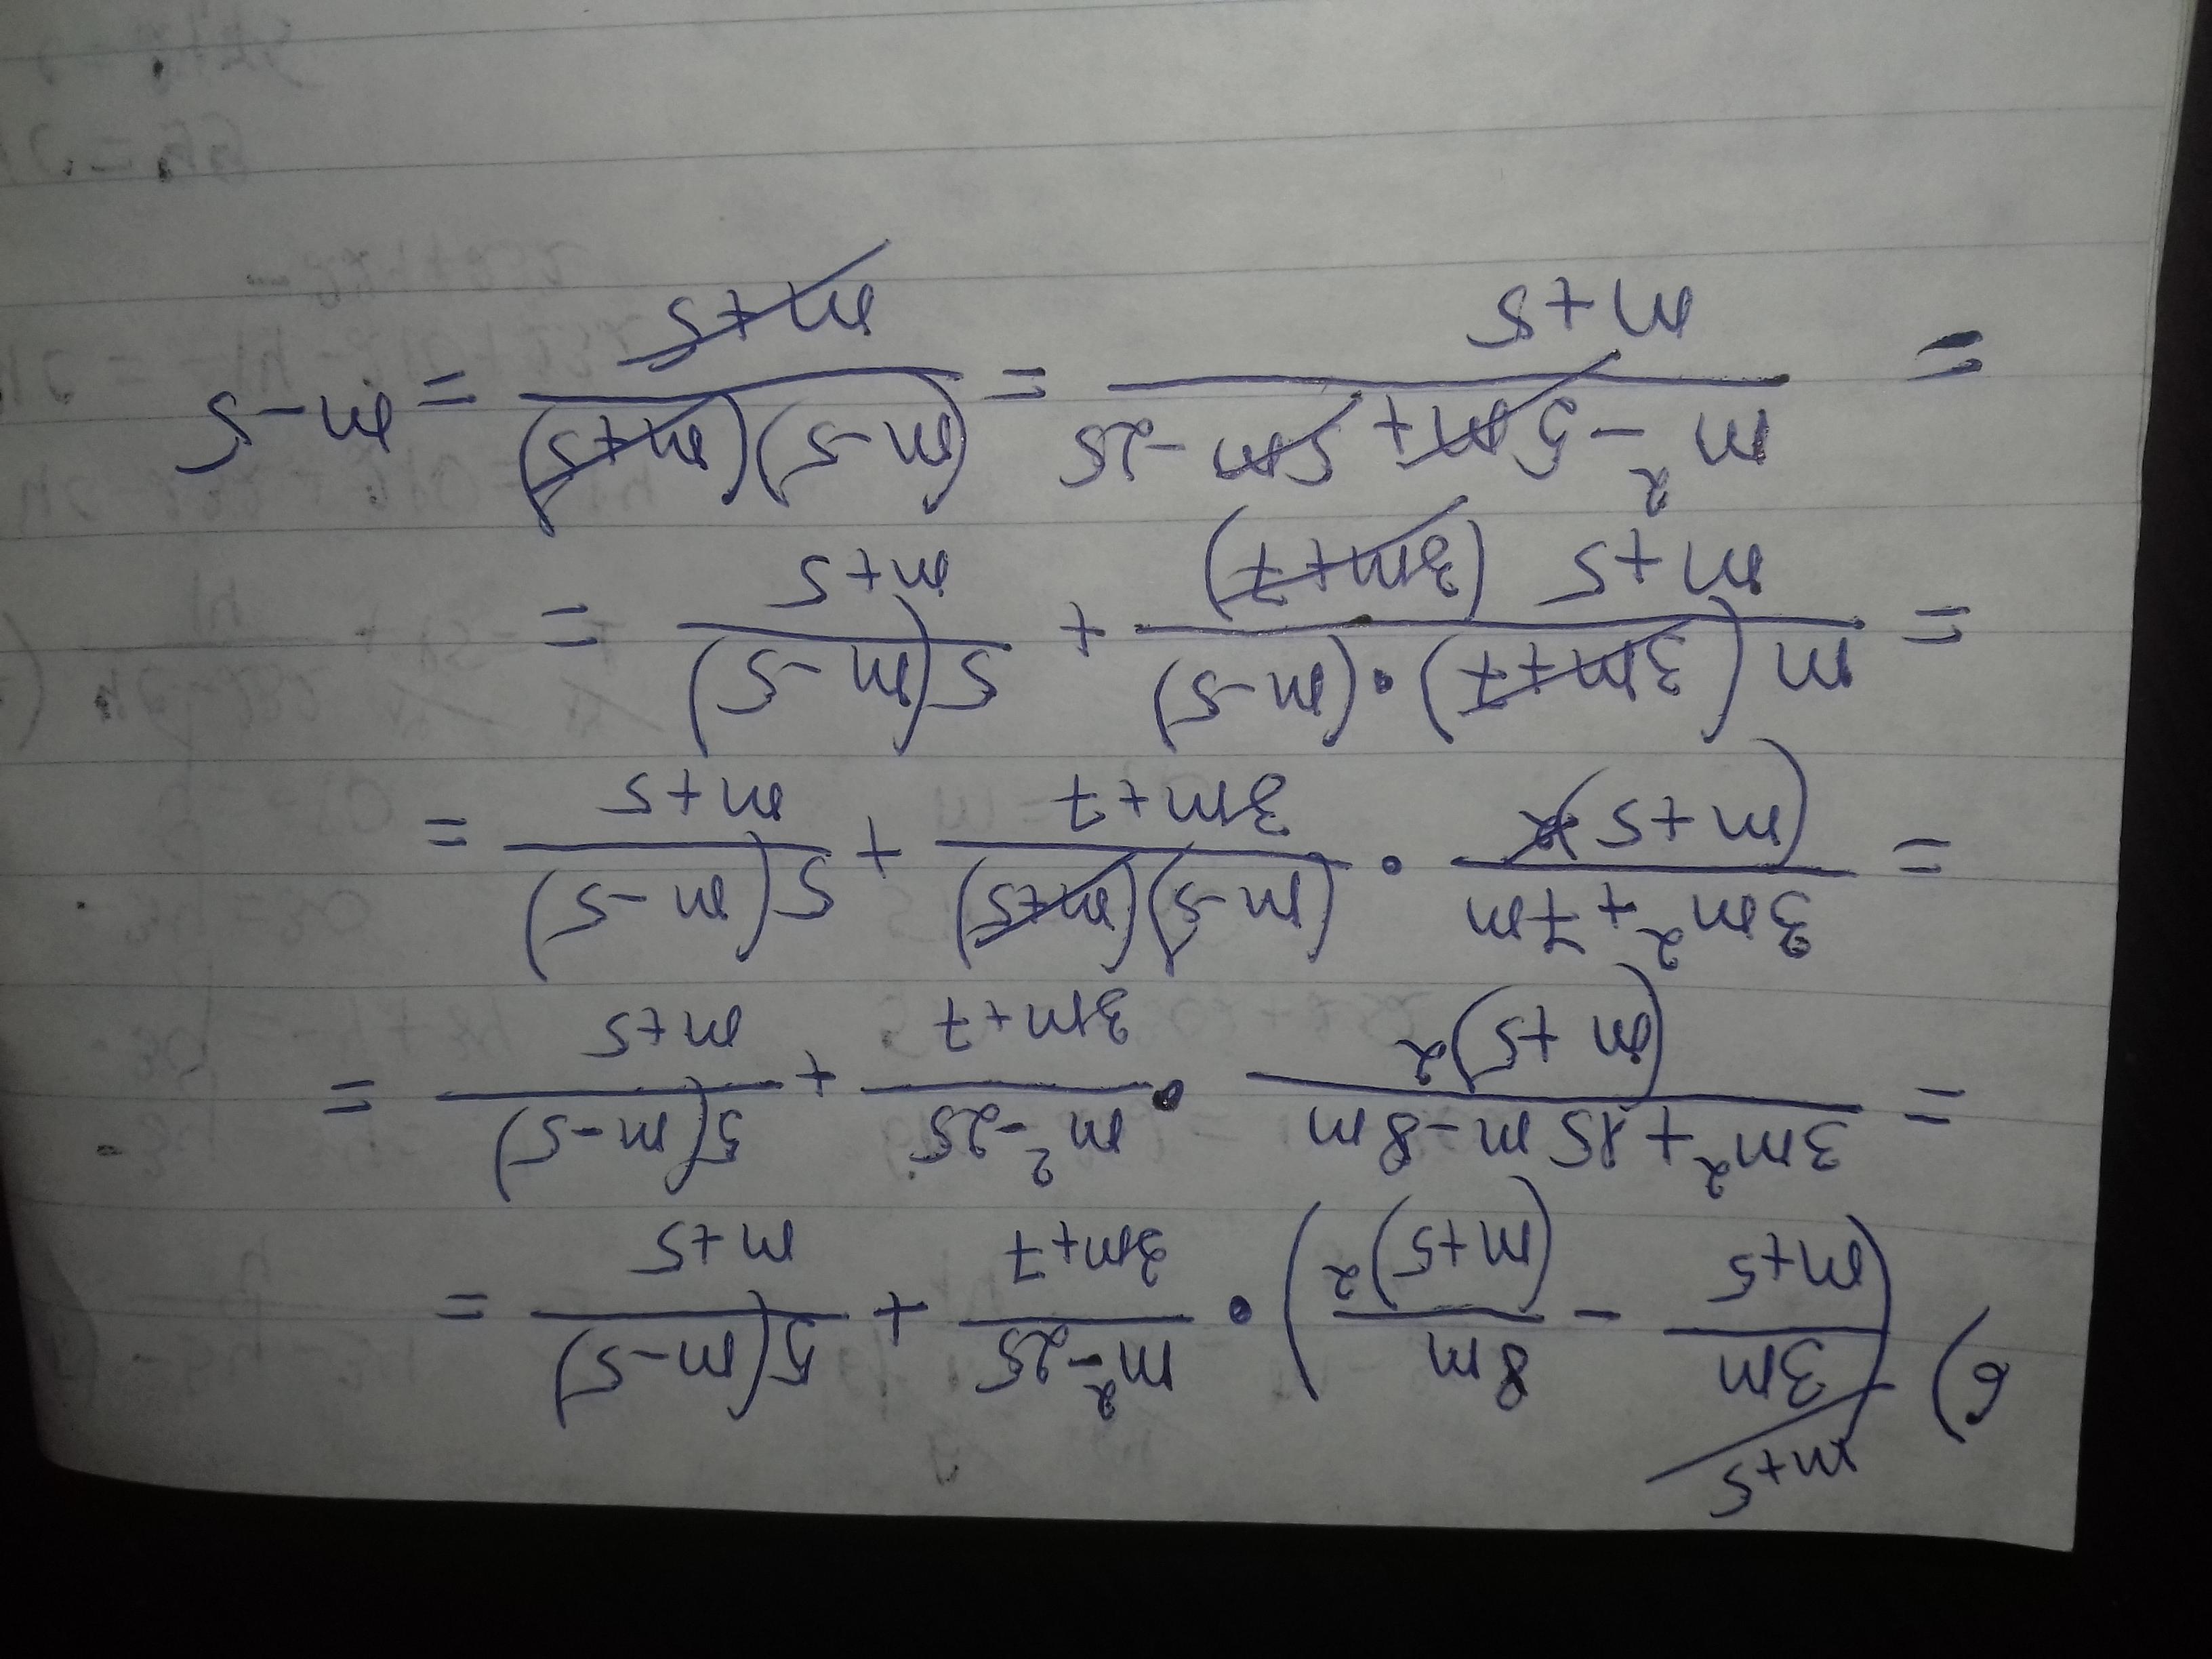 m+5
6) (3m/(m+5) - 8m/(m+5)²) • (m²-25)/(3m+7) + 5(m-5)/(m+5) =
= (3m²+15m-8m)/(m+5)² • (m²-25)/(3m+7) + 5(m-5)/(m+5) =
= (3m²+7m)/(m+5)² • (m-5)(m+5)/(3m+7) + 5(m-5)/(m+5) =
= m(3m+7)•(m-5)/(m+5 (3m+7)) + 5(m-5)/(m+5) =
= (m²-5m+5m-25)/(m+5) = (m-5)(m+5)/(m+5) = m-5